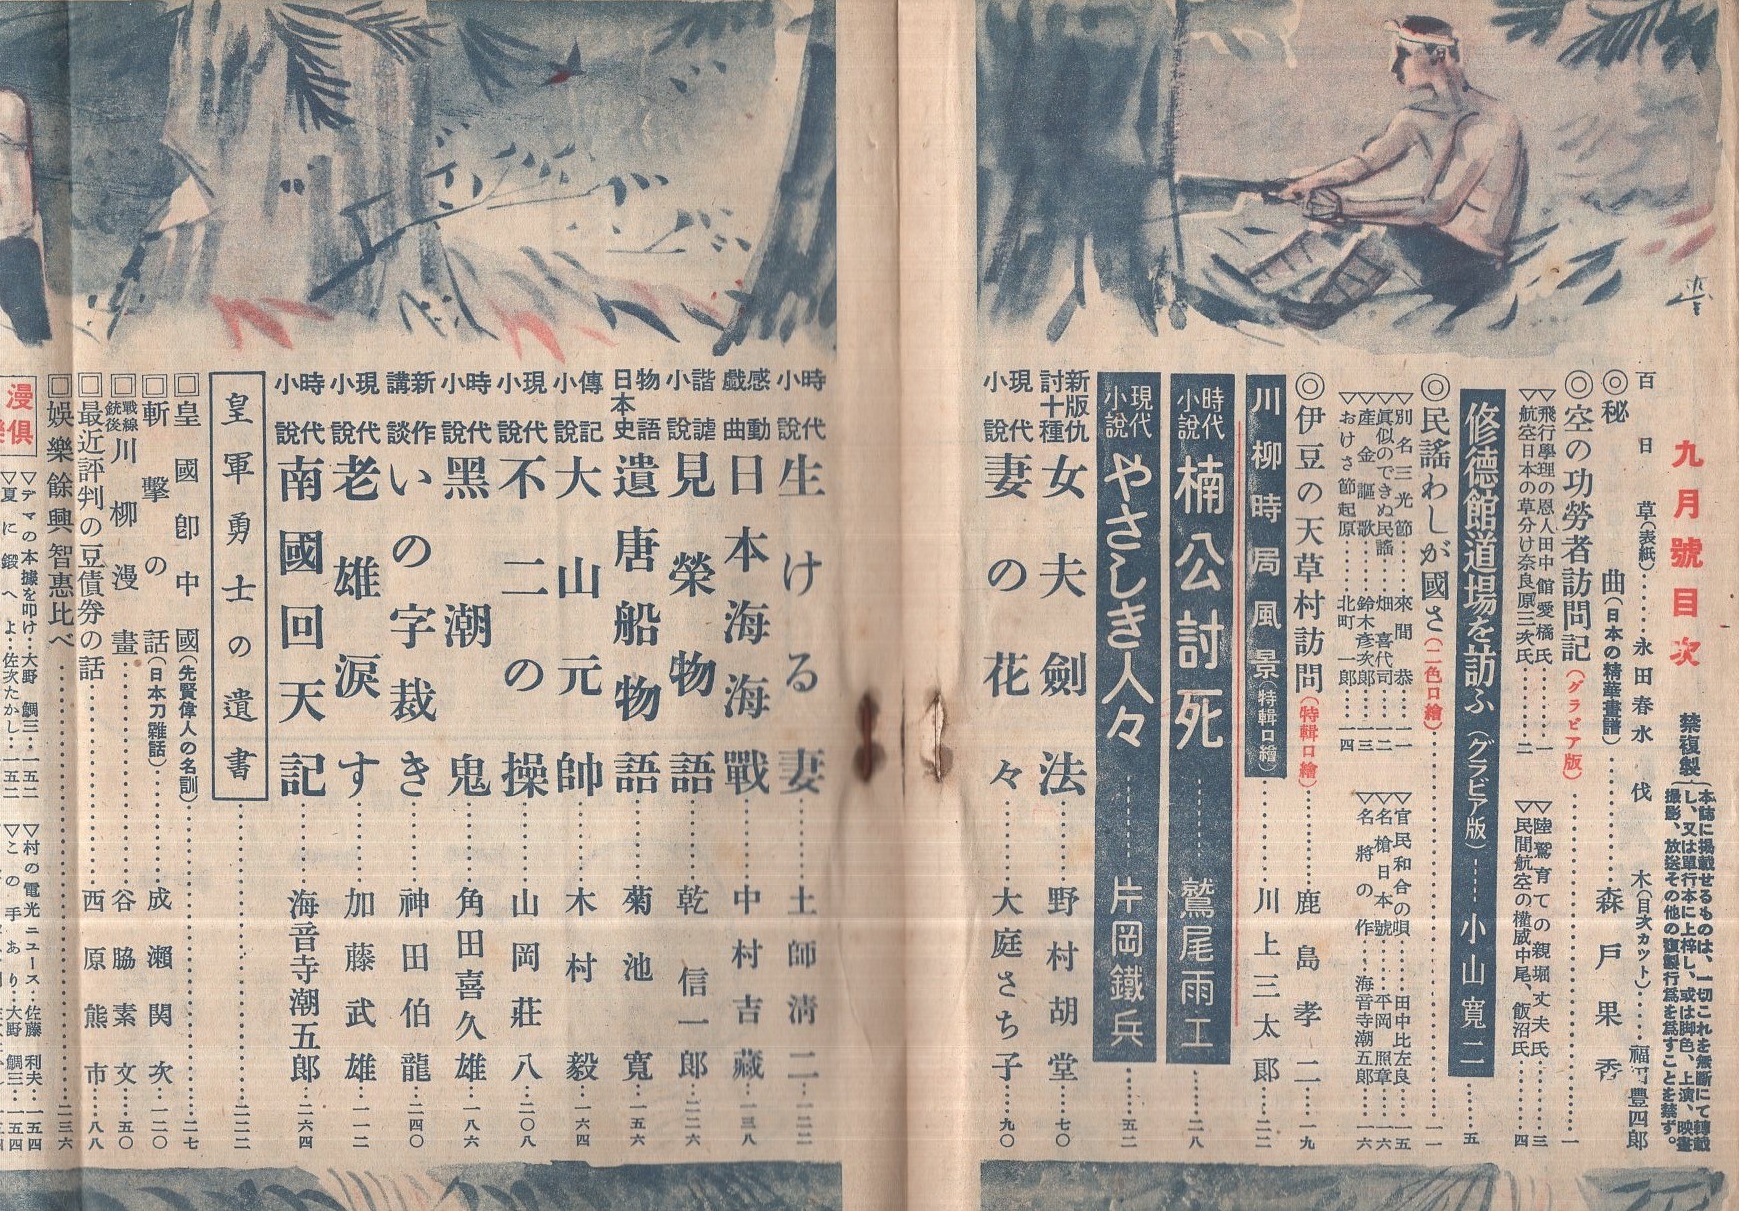 九月號目次
禁複製
本誌に掲載せるものは、一切これを無斷にて轉載
し、又は單行本に上梓し、或は脚色、上演、映畫
撮影、放送その他の複製行爲を爲すことを禁ず。
百日草(表紙)……永田春水
伐木(目次カット)……福田豊四郎
◎秘曲(日本の精華畫譜)……森戸果香
◎空の功勞者訪問記(グラビア版)……一
▽飛行學理の恩人田中館愛橘氏……一
▽航空日本の草分け奈良原三次氏……二
▽陸鷲育ての親堀丈夫氏……三
▽民間航空の權威中尾、飯沼氏……四
修德館道場を訪ふ(グラビア版)……小山寬二……五
◎民謠わしが國さ(二色口繪)……一一
▽別名三光節……來間恭……一一
▽眞似のできぬ民謠……畑喜代司……一二
▽產金謳歌……鈴木彥次郎……一三
▽おけさ節起原……北町一郎……一四
▽官民和合の唄……田中比左良……一五
▽名槍日本號……平岡照章……一六
▽名將の作……海音寺潮五郎……一六
◎伊豆の天草村訪問(特輯口繪)……鹿島孝二……一九
川柳時局風景(特輯口繪)……川上三太郎……二二
時代小說 楠公討死……鷲尾雨工……二八
現代小說 やさしき人々……片岡鐵兵……五二
新版仇討十種 女夫劍法……野村胡堂……七〇
現代小說 妻の花々……大庭さち子……九〇
時代小說 生ける妻……土師淸二……一二二
感動戲曲 日本海海戰……中村吉藏……一三八
諧謔小說 見榮物語……乾信一郎……二二六
物語日本史 遺唐船物語……菊池寬……一五六
傳記小說 大山元帥……木村毅……一六四
現代小說 不二の操……山岡莊八……二〇八
時代小說 黑潮鬼……角田喜久雄……一八六
新作講談 いの字裁き……神田伯龍……二四〇
現代小說 老雄淚す……加藤武雄……一一二
時代小說 南國回天記……海音寺潮五郎……二六四
皇軍勇士の遺書……二二二
回皇國卽中國(先賢偉人の名訓)……二七
回斬擊の話(日本刀雜話)……成瀨関次……一二〇
回戰線銃後川柳漫畫……谷脇素文……一五〇
回最近評判の豆債券の話……西原熊市……一八八
回娛樂餘興智惠比べ……二三六
漫
俱
▽デマの本據を叩け…大野鯛三…一五二
▽夏に鍛へよ…佐次たかし…一五二
▽村の電光ニュース…佐藤利夫…一五四
▽この手あり…大野鯛三…一五四